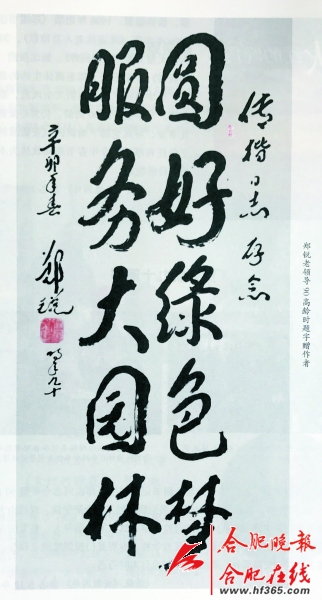 传楷同志存念
圆好绿色梦
服务大园林
辛卯年春
郑锐
时年九十
郑锐老领导90高龄时题字赠作者
合肥晚报
合肥在线
www.hf365.com